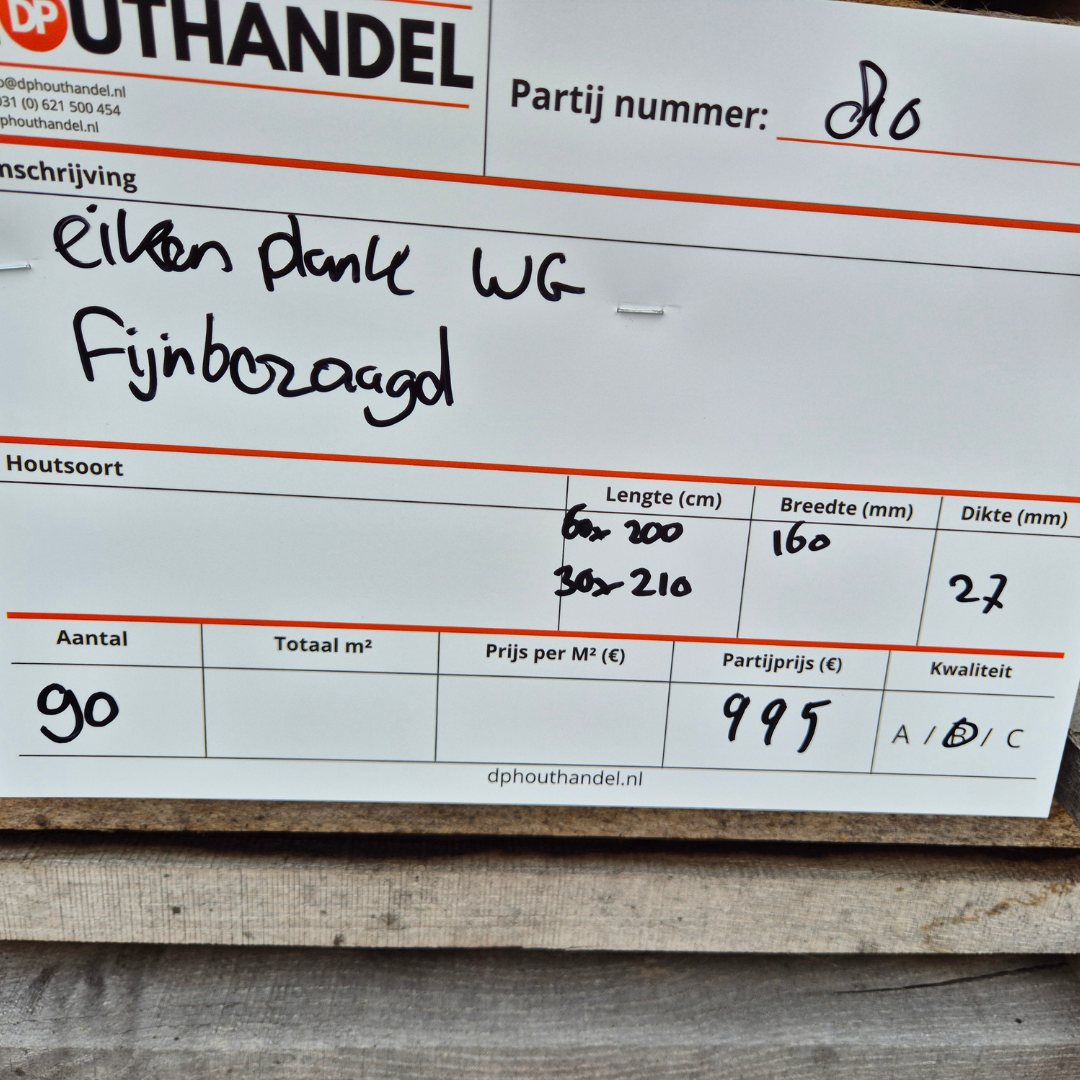 DP
OUTHANDEL
o@dphouthandel.nl
031 (0) 621 500 454
phouthandel.nl
Partij nummer:
mschrijving
eiken plank WG
Fijnbezaagd
Houtsoort
Lengte (cm)
Breedte (mm)
Dikte (mm)
60x 200
160
30x 210
27
Aantal
Totaal m²
Prijs per M² (€)
Partijprijs (€)
Kwaliteit
90
995
A / B / C
dphouthandel.nl